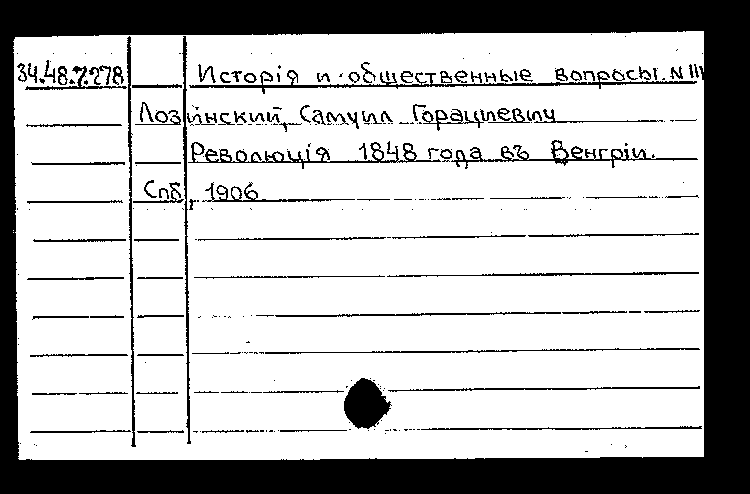 34.48.7.278 Исторія и общественные вопросы. N III
Лозинский, Самуил Горациевич
Революція 1848 года въ Венгріи.
Спб, 1906